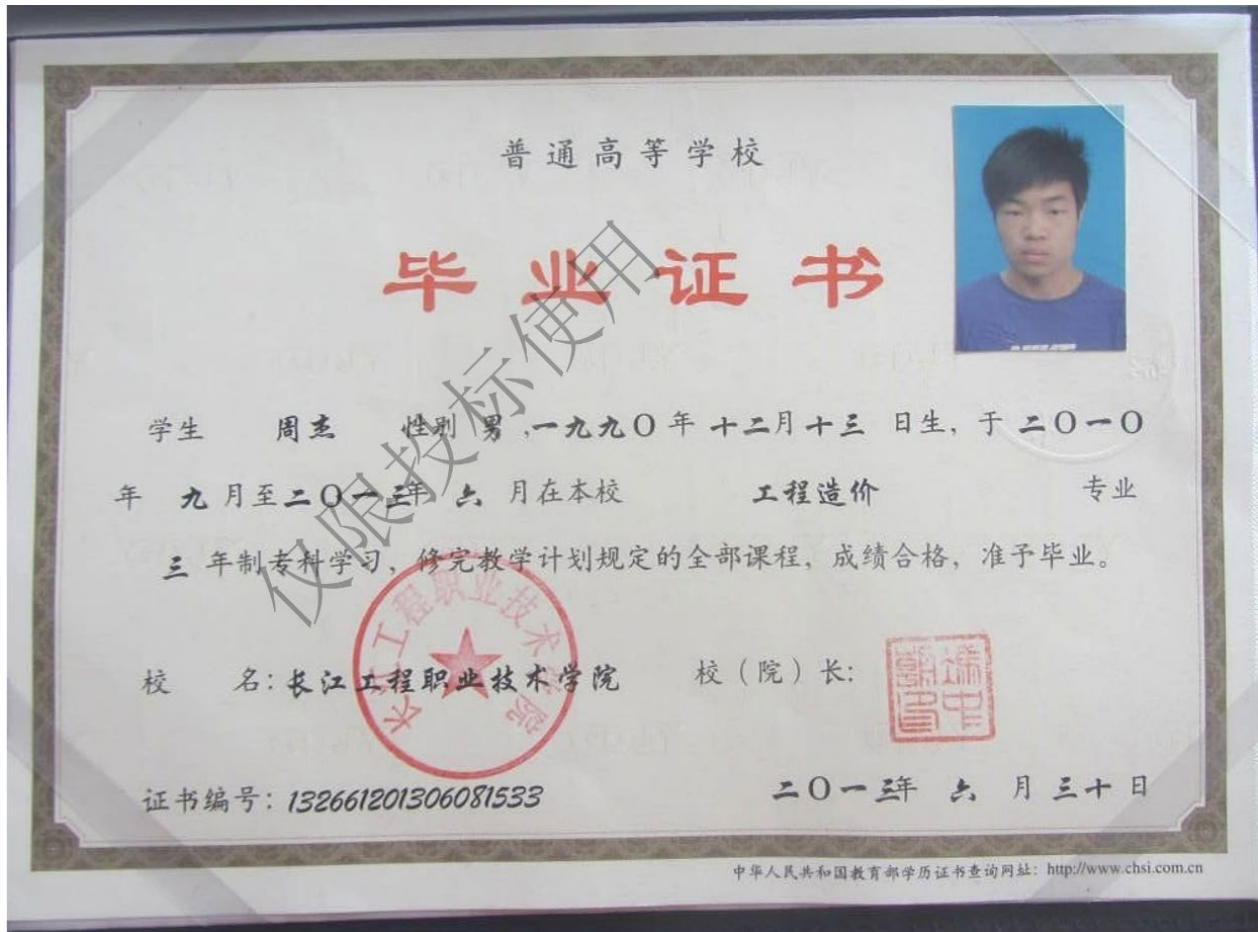 普通高等学校
毕业证书
学生 周杰 性别 男,一九九〇年 十二月十三 日生, 于 二〇一〇
年 九月至二〇一三年 六 月在本校 工程造价 专业
三 年制专科学习, 修完教学计划规定的全部课程, 成绩合格, 准予毕业。
校 名: 长江工程职业技术学院 校(院)长:
证书编号: 132661201306081533 二〇一三年 六 月 三十 日
中华人民共和国教育部学历证书查询网址: http://www.chsi.com.cn
仅限投标使用
长江工程职业技术学院